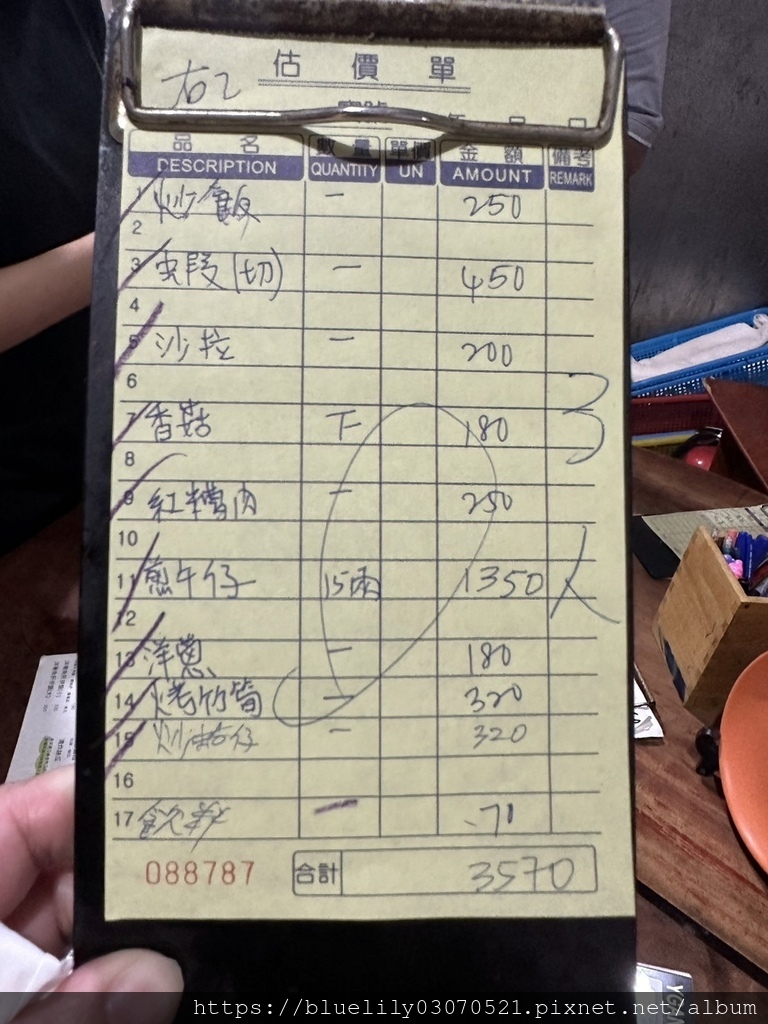 右2
估價單
品名 數量 單價 金額 備考
DESCRIPTION QUANTITY UN AMOUNT REMARK
1 炒飯 一 250
2
3 虫段(切) 一 450
4
5 沙拉 一 200
6
7 香菇 下 180
8
9 紅糟肉 一 250
10
11 煎午仔 15兩 1350
12
13 洋蔥 一 180
14 烤竹筍 一 320
15 炒 仔 一 320
16
17 飲料 一 71
3人
088787 合計 3570
https://bluelily03070521.pixnet.net/album